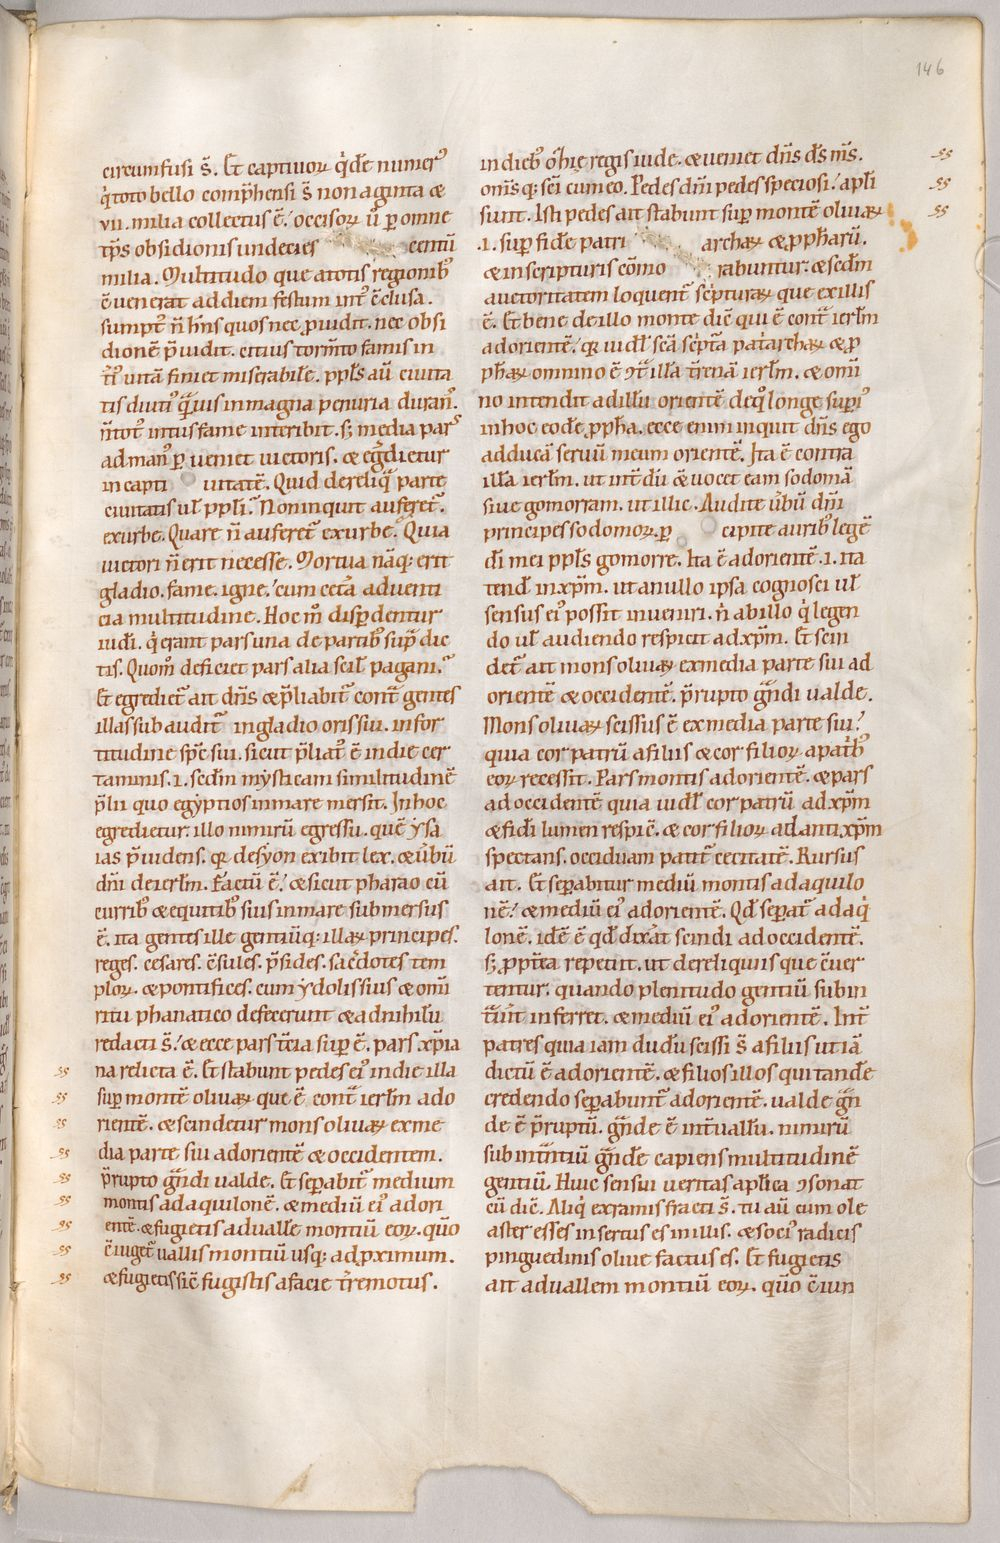 146
circumfusi s̄. Et captiuoꝝ q̇dē numerꝰ
q̇ toto bello comp̄hensi s̄ nonaginta &
vii. milia collectus ē. occisoꝝ ū ꝑ omne
tp̄s obsidionis undecies centū
milia. Multitudo que a totis regionibꝰ
ēuenerat ad diem festum int̄ ēclusa.
sumpt̄ n̄ hn̄s quos nec ꝓuidit. nec obsi
dionē p̄uidit. citius torm̄to famis in
uitā finiet miserabilē. ppl̄s aū ciuita
tis diutiꝰ q̄uis in magna penuria durans.
intus fame interibit. sꝫ media pars
ad manꝰ ꝑueniet uictoris. & eḡdietur
in capti uitatē. Quid de reliq̄ parte
ciuitatis ul̄ ppl̄i. Non inquit auferet̄
ex urbe. Quare n̄ auferet̄ ex urbe. Quia
uictori n̄ erit necesse. Mortua nāqꝫ erit
gladio. fame. igne. cum cet̄a aduenti
cia multitudine. Hoc m̄ disꝑdentur
iudi. q̇ erant pars una de partibꝰ sup̄dic
tis. Quom̄ deficiet pars alia scil̄ pagani.
Et egrediet̄ ait dn̄s & p̄liabit̄ cont̄ gentes
illas subaudit̄ in gladio oris sui. in for
titudine spc̄ sui. sicut p̄liatꝰ ē in die cer
taminis. i. scdm̄ mysticam similitudinē
p̄lii quo egyptios in mare mersit. In hoc
egredietur. illo nimirū egressu. quē ysa
ias p̄uidens. qꝛ de syon exibit lex. & ūbū
dn̄i de ierl̄m. Factū ē. & sicut pharao cū
curribꝰ & equitibꝰ suis in mare submersus
ē. ita gentes ille gentiūqꝫ illaꝝ principes.
reges. cesares. ēsules. p̄sides. sac̄dotes tem
ploꝝ. & pontifices. cum ydolis suis & omī
ritu phanatico defecerunt & ad nihilū
redacti s̄. & ecce pars t̄cia suꝑ ē. pars xp̄ia
na relicta ē. Et stabunt pedes eiꝰ in die illa
suꝑ montē oliuaꝝ que ē cont̄ ierl̄m ad o
rientē. & scindetur mons oliuaꝝ ex me
dia parte sui ad orientē & occidentem.
p̄rupto ḡndi ualde. Et seꝑabit̄ medium
montis ad aquilonē. & mediū eiꝰ ad ori
entē. & fugietis ad uallē montiū eoꝝ. qūo
ēiuget̄ uallis montiū usqꝫ ad ꝓximum.
& fugietis sic̄ fugistis a facie t̄remotus.
in diebꝰ regis iude. & ueniet dn̄s ds̄ m̄s.
omn̄sqꝫ sc̄i cum eo. Pedes dn̄i pedes speciosi. apl̄i
sunt. Isti pedes ait stabunt suꝑ montē oliuaꝝ
.i. suꝑ fidē patri archaꝝ & ꝓpharū.
& in scripturis cōmo rabuntur. & scdm̄
auctoritatem loquent̄ sc̄pturaꝝ que ex illis
ē. Et bene de illo monte dic̄ qui ē cont̄ ierl̄m
ad orientē. qꝛ uidl̄ scā sc̄pta pat̄archaꝝ & ꝓ
phaꝝ omnino ē illā t̄renā ierl̄m. & omī
no intendit ad illū orientē de qͦ longe supiꝰ
in hoc eodē ꝓpha. ecce enim inquit dn̄s ego
adducā seruū meum orientē. Ita ē contra
illā ierl̄m. ut int̄dū & uocet eam sodomā
siue gomorram. ut illic. Audite ūbū dn̄i
principes sodomoꝝ. ꝑ cipite auribꝰ legē
dī mei ppl̄s gomorre. Ita ē ad orientē .i. ita
tendl̄ in xp̄m. ut a nullo ipsa cognosci ul̄
sensus eiꝰ possit inueniri. n̄ ab illo q̇ legen
do ul̄ audiendo respicit ad xp̄m. Et scin
det̄ ait mons oliuaꝝ ex media parte sui ad
orientē & occidentē. p̄rupto ḡndi ualde.
Mons oliuaꝝ scissus ē ex media parte sui.
quia cor patrū a filiis & cor filioꝝ a pat̄bꝰ
eoꝝ recessit. Pars montis ad orientē. & pars
ad occidentē quia uidl̄ cor patrū ad xp̄m
& fidī lumen respic̄. & cor filioꝝ ad antixp̄m
spectans. occiduam patit̄ cecitatē. Rursus
ait. Et seꝑabitur mediū montis ad aquilo
nē. & mediū eiꝰ ad orientē. Qd̄ seꝑat̄ ad aq̇
lonē. idē ē qd̄ dixāt scindi ad occidentē.
sꝫ ꝓpt̄ea repetiit. ut de reliquiis que ēuer
tentur. quando plenitudo gentiū subin
inferret. & mediū eiꝰ ad orientē. Int̄
patres quia iam dudū scissi s̄ a filiis ut iā
dictū ē ad orientē. & filios illos qui tandē
credendo seꝑabunt̄ ad orientē. ualde ḡn
de ē p̄ruptū. ḡnde ē int̄uallū. nimirū
ḡndē capiens multitudinē
gentiū. Huic sensui ueritas aplica ꝯsonat
cū dic̄. Aliq̇ ex ramis fracti s̄. tu aū cum ole
aster esses insertus es in illis. & sociꝰ radicis
pinguedinis oliue factus es. Et fugietis
ait ad uallem montiū eoꝝ. qūo ēiun